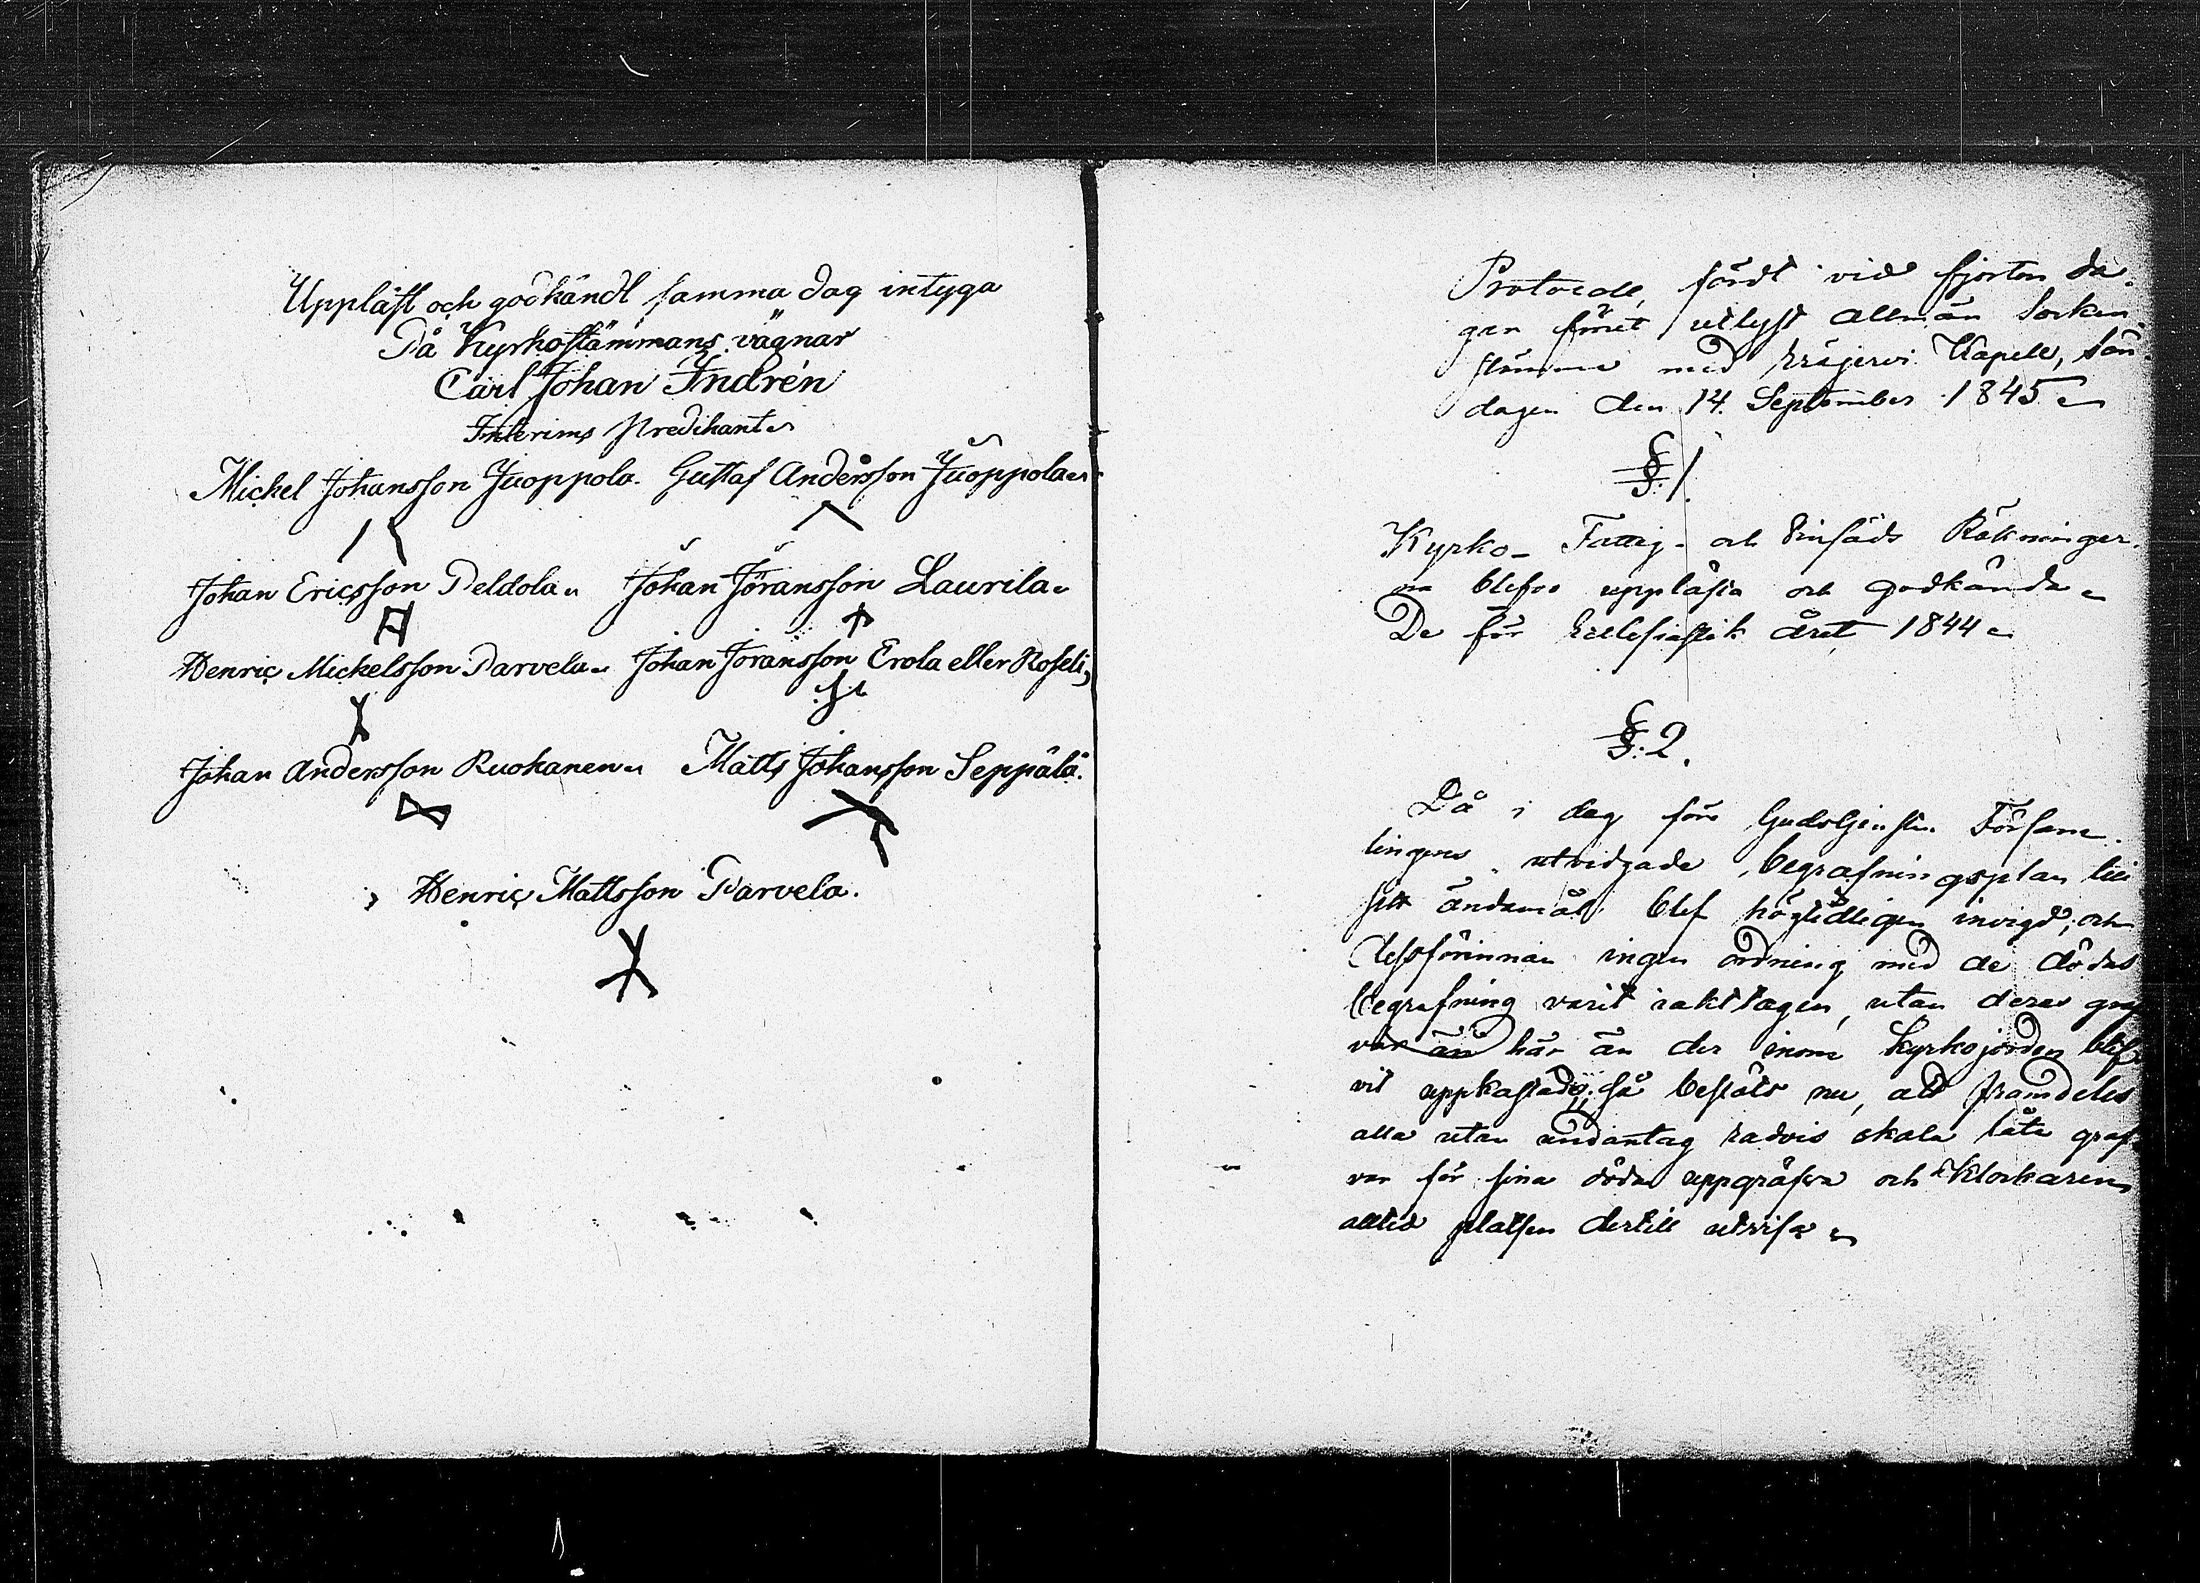 Uppläst och godkändt samma dag intyga
På Kyrkostämmans vägnar
Carl Johan Indrén
Interims Predikant
Mickel Johansson Juoppola. Gustaf Andersson Juoppola
Johan Ericsson Peldola Johan Jöransson Laurila
Henric Mickelsson Parvela Johan Jöransson Erola eller Koseli,
Johan Andersson Ruohanen Matts Johansson Seppälä.
Henric Mattsson Parvela.
Protocoll, fördt vid fjorton da-
gar förut utlyst allmän Socken
stämma med Evijervi Kapell, Sön
dagen den 14 September 1845
§. 1.
Kyrko- Fattig- och Räkninger-
na blefvo upplästa och godkända
De för Ecclesiastik året 1844
§. 2.
Då i dag före Gudstjensten Försam-
lingens utvidgade begrafningsplan till
sitt ändamål blef högtidligen invigd, och
dessförinnan ingen ordning med de dödas
begrafning varit iakttagen, utan deras graf
var än här än der inom Kyrkojorden blif
vit uppkastade; så beslöts nu, att framdeles
alla utan undantag radvis skola låta graf
var för sina döda uppgräfva och Klockaren
alltid platsen dertill utvisa